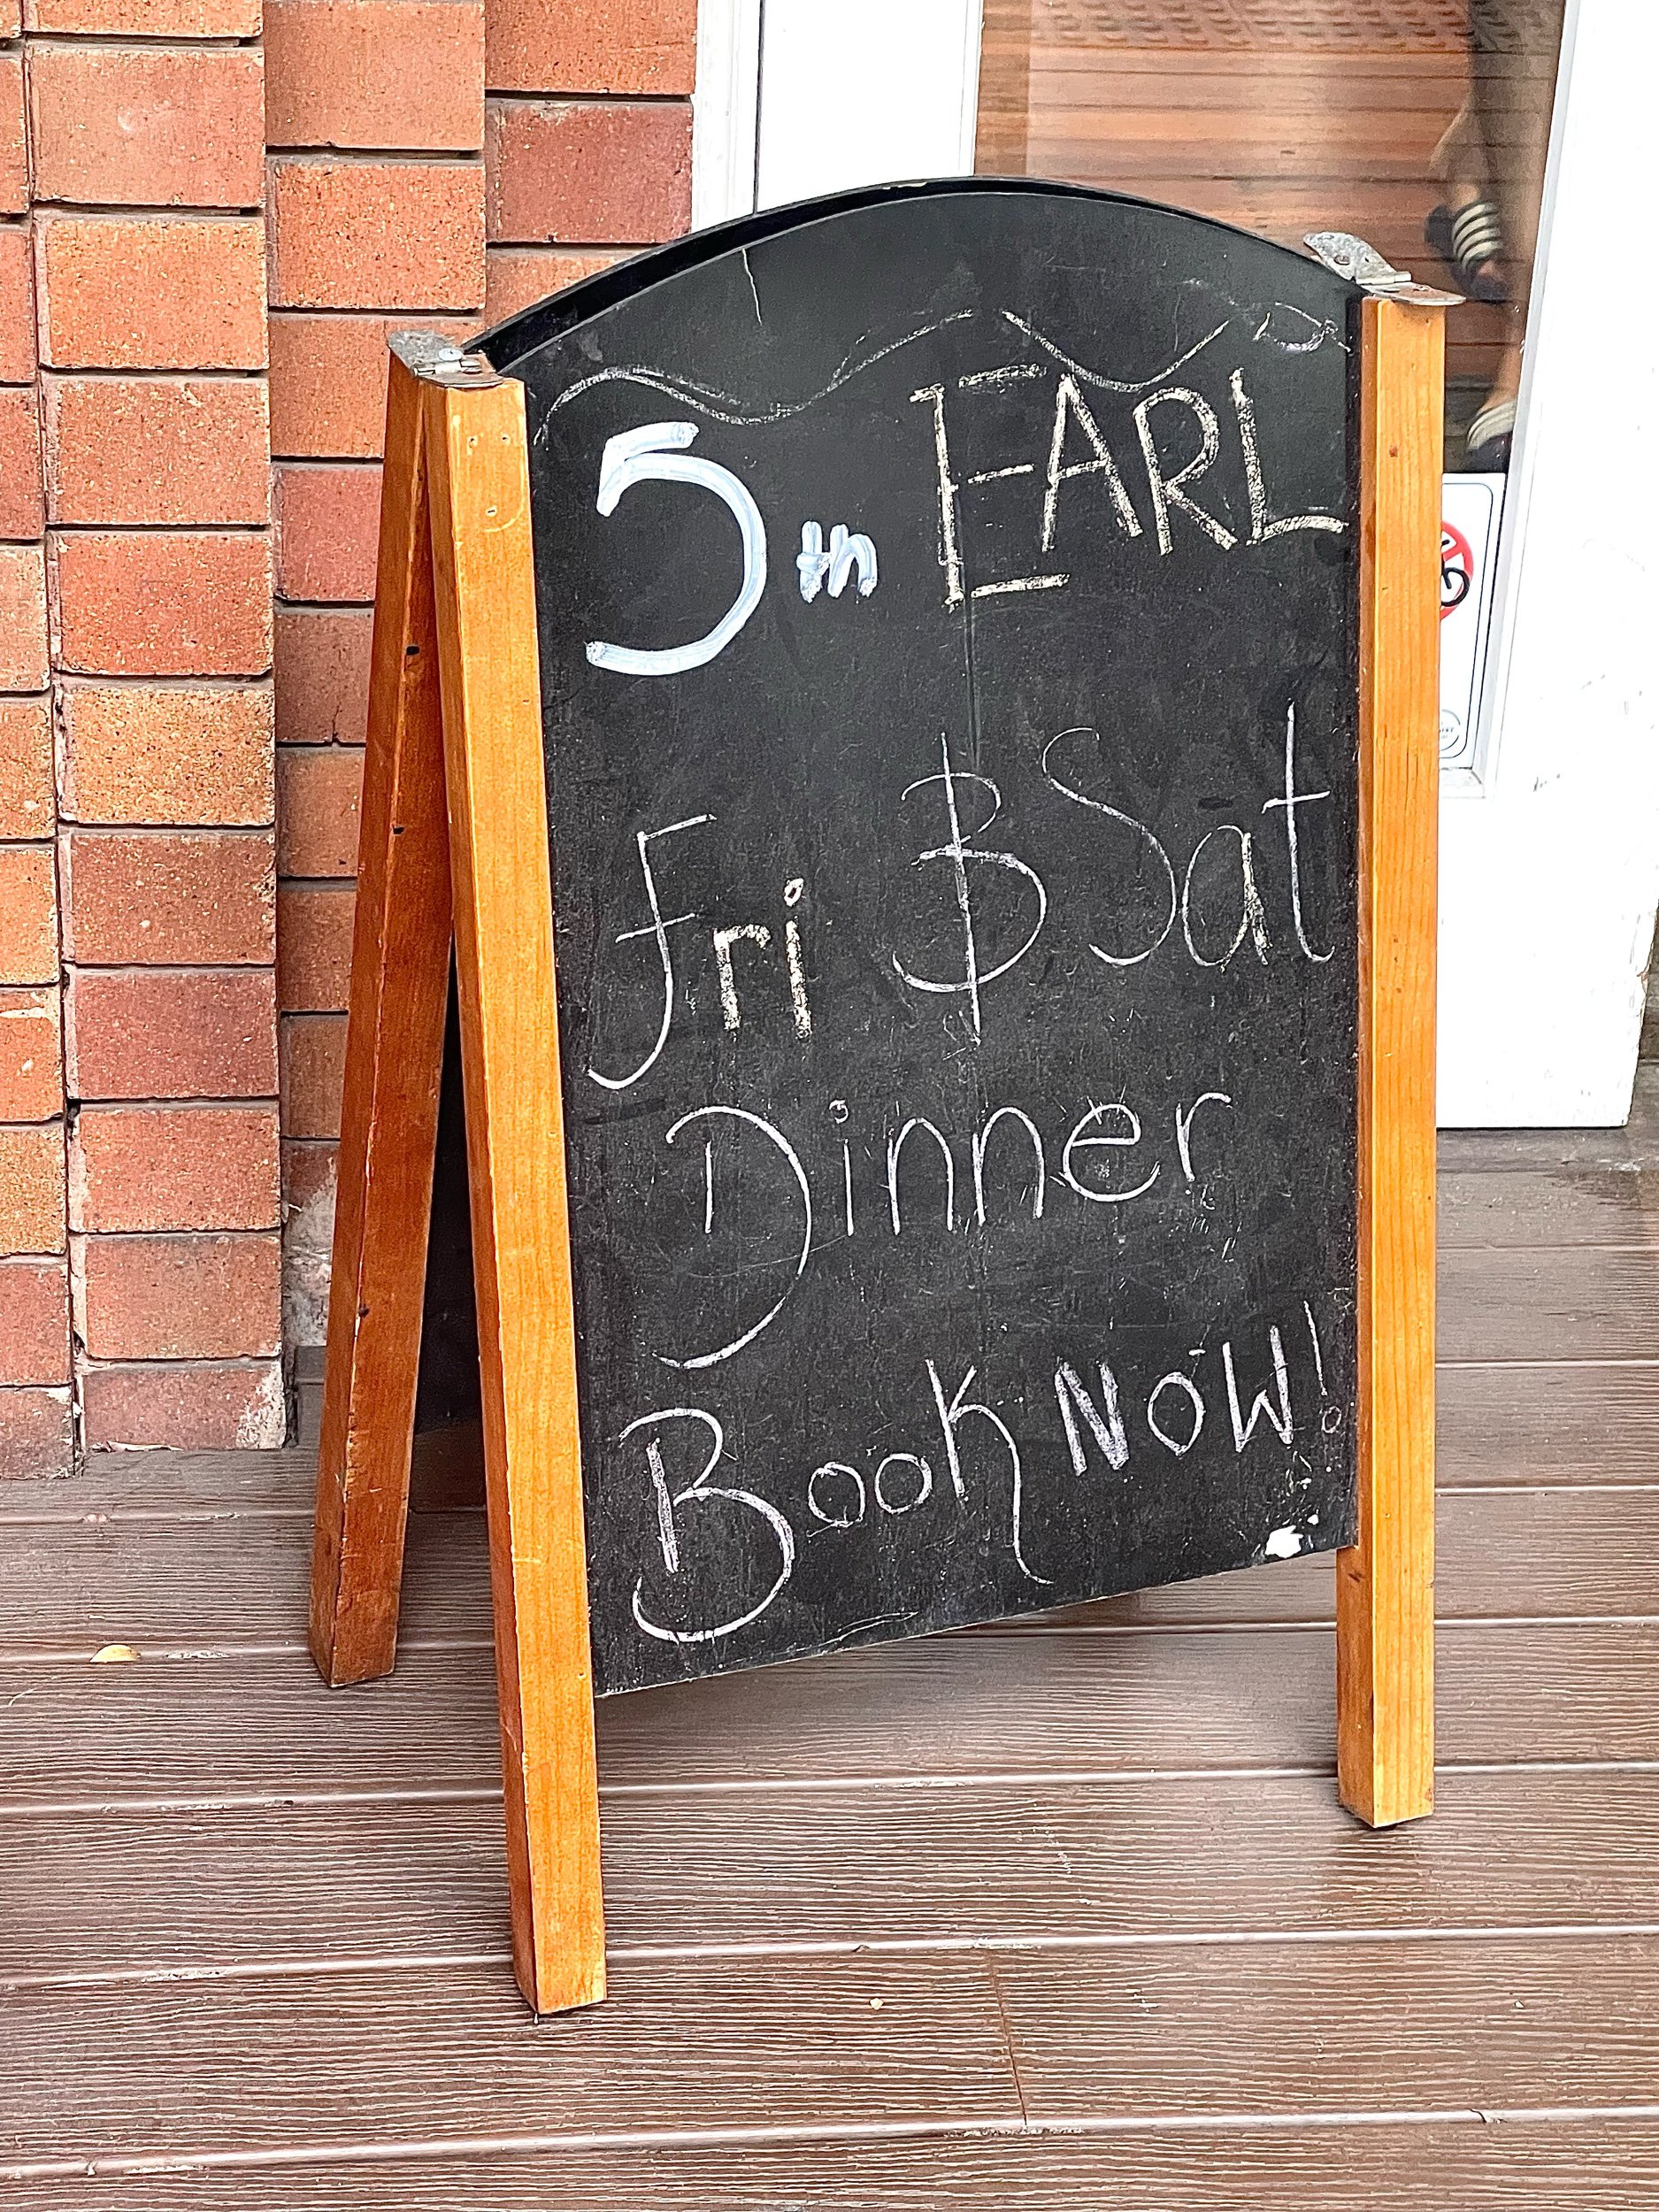 5th EARL
Fri $ Sat
Dinner
Book NOW!